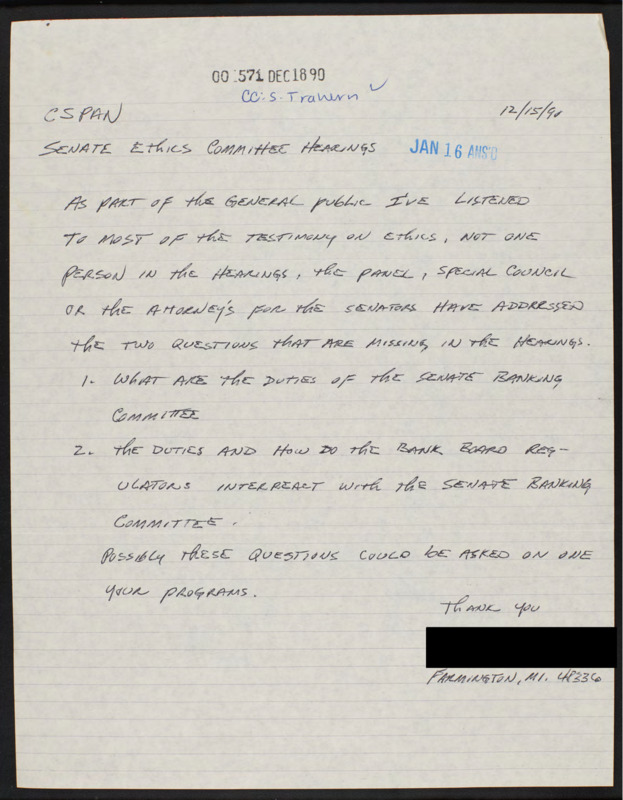 00 571 DEC 18 90
CC: S. Trahern
CSPAN
12/15/90
SENATE EthICS COMMITTEE HEARINGS
JAN 16 ANS'D
AS PART OF the GENERAL public I'VE LISTENED
TO MOST OF the TESTIMONY ON EthICS, NOT ONE
PERSON IN the HEARINGS, the PANEL, SPECIAL COUNCIL
OR the ATTORNEY'S FOR the SENATORS HAVE ADDRESSED
the TWO QUESTIONS that ARE MISSING IN the HEARINGS.
1. WHAT ARE the DUTIES OF the SENATE BANKING
COMMITTEE
2. the DUTIES AND HOW DO the BANK BOARD REG-
ULATORS INTERREACT WITH the SENATE BANKING
COMMITTEE.
POSSIBLY thESE QUESTIONS COULD be ASKED ON ONE
YOUR PROGRAMS.
thANK YOU
FARMINGTON, MI. 48336